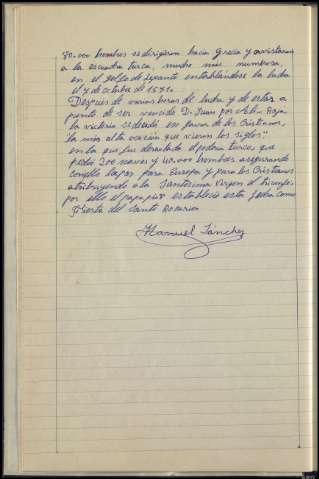 80.000 hombres se dirigieron hacia Grecia y avistaron
a la escuadra turca, mucho más numerosa,
en el golfo de Lepanto entablándose la lucha
el 7 de octubre de 1571.
Después de varias horas de lucha y de estar a
punto de ser vencido D. Juan por Ali-Baja
la victoria se decidió en favor de los Cristianos,
la más alta ocasión que vieron los siglos"
en la que fue derrotado el poderío turco que
perdió 200 naves y 40.000 hombres asegurando
con ello la paz para Europa y para los Cristianos
atribuyendo a la Santísima Virgen el triunfo,
por ello el papa pio V estableció esta fecha como
Fiesta del Santo Rosario
Manuel Sánchez